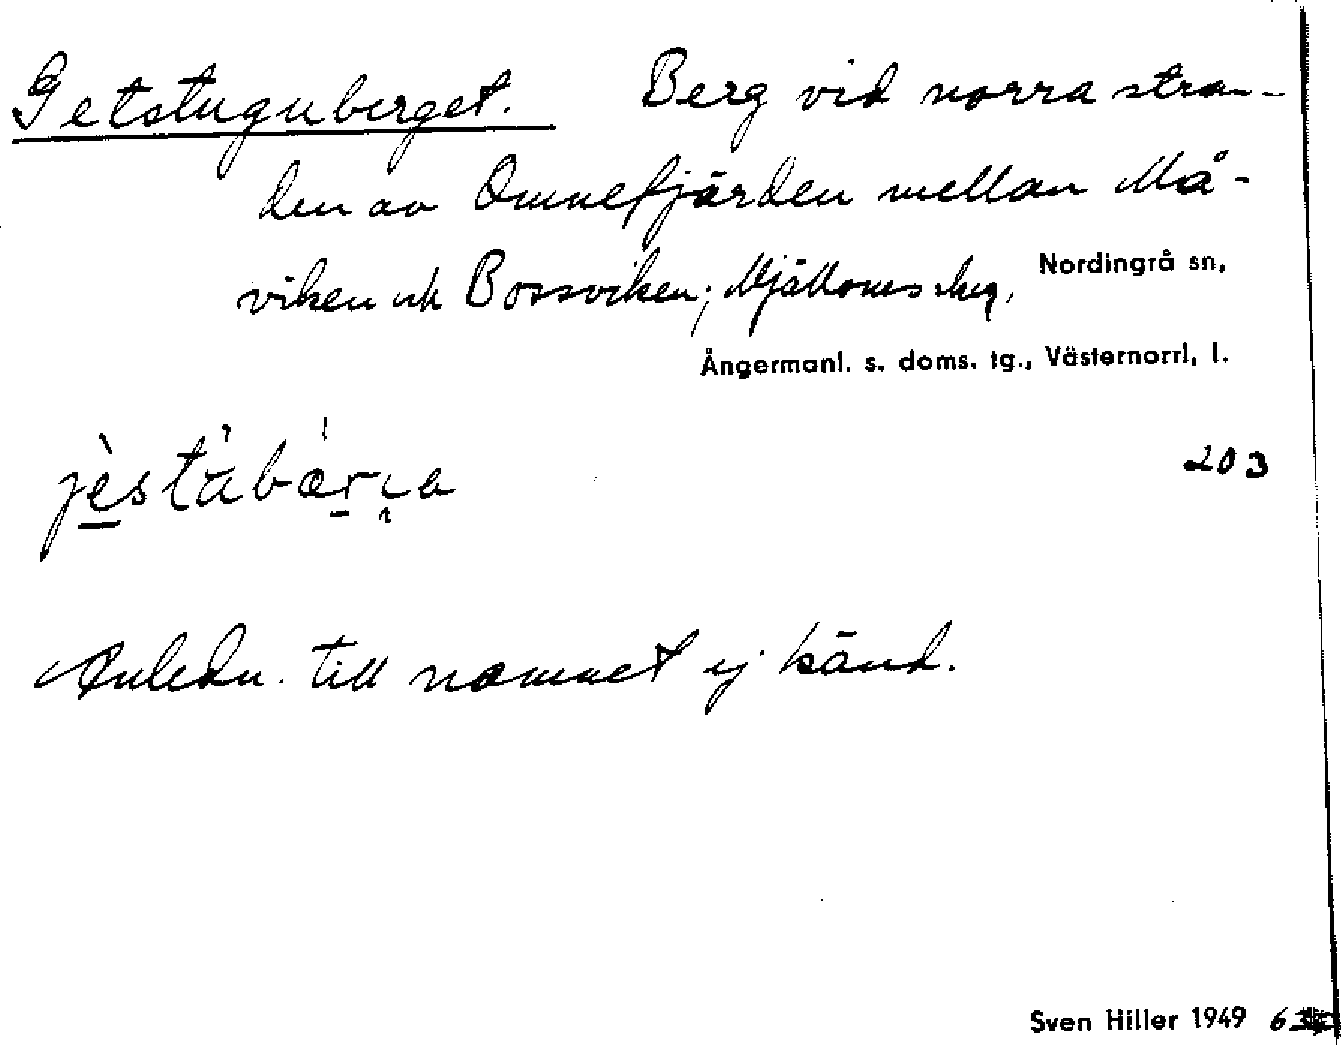 Getstuguberget. Berg vid norra stran-
den av Omnefjärden mellan Må-
viken och Bossviken; Mjälloms skog, Nordingrå sn,
Ångermanl. s. doms. tg., Västernorrl. l.
203
Anledn. till namnet ej känd.
Sven Hiller 1949